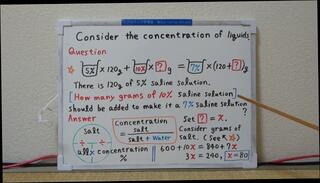 Consider the concentration of liquids
Question
5% × 120g + 10% × ? g = 7% × (120+?)g
There is 120g of 5% saline solution.
How many grams of 10% saline solution
should be added to make it a 7% saline solution?
Answer
Set ? = x.
salt
÷ ÷
all × concentration
%
Concentration = salt / salt + water
Consider grams of
salt. (See ☆)
600+10x = 840+7x
3x = 240, x = 80